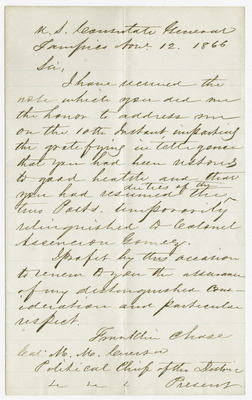 U. S. Consulate General
Tampico Nov. 12. 1866
Sir,
I have received the
note which you did me
the honor to address me
on the 10th Instant imparting
the gratifying intelligence
that you had been restored
to good health and that
you had resumed the duties of the
two Posts. temporarily
relinquished to Colonel
Ascencion Gomez.
I profit by this occasion
to renew to you the assurance
of my distinguished con-
sideration and particular
respect.
Franklin Chase
Col. M. M.
Political Chief of the District
Present